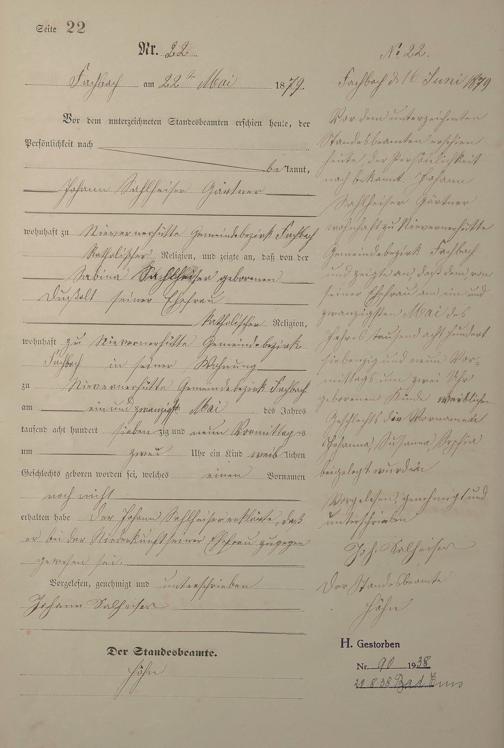 Seite 22
Nr. 22
Fachbach am 22ten Mai 1879.
Vor dem unterzeichneten Standesbeamten erschien heute, der
Persönlichkeit nach
be kannt,
Johann Sahlheiser Gärtner
wohnhaft zu Nievernerhütte Gemeindebezirk Fachbach
Katholischer Religion, und zeigte an, daß von der
Sabina Sahlheiser geborenen
seiner Ehefrau
Katholischer Religion,
wohnhaft zu Nievernerhütte Gemeindebezirk
Fachbach in seiner Wohnung
zu Nievernerhütte Gemeindebezirk Fachbach
am ein und zwanzigsten Mai des Jahres
tausend acht hundert sieben zig und neun Vormittags
um zwei Uhr ein Kind weiblichen
Geschlechts geboren worden sei, welches einen Vornamen
noch nicht
erhalten habe Der Johann Sahlheiser erklärte, daß
er bei der Niederkunft seiner Ehefrau zugegen
gewesen sei.
Vorgelesen, genehmigt und unterschrieben
Johann Salheiser
Der Standesbeamte.
Höhn
No 22.
Fachbach d. Juni 1879
Vor dem unterzeichneten
Standesbeamten erschien
heute der Persönlichkeit
nach bekannt Johann
Sahlheiser Gärtner
wohnhaft zu Nievernerhütte
Gemeindebezirk Fachbach
und zeigte an, daß dem von
seiner Ehefrau am ein und
zwanzigsten Mai des
Jahres tausend acht hundert
siebenzig und neun Vor-
mittags um zwei Uhr
geborenen Kinde weiblichen
Geschlechts die Vornamen
Johanna Susanna Sophia
beigelegt wurden
Vorgelesen, genehmigt und
unterschrieben
Joh. Salheiser
Der Standesbeamte
Höhn
H. Gestorben
Nr. 90 1938
21.8.38 Bad Ems